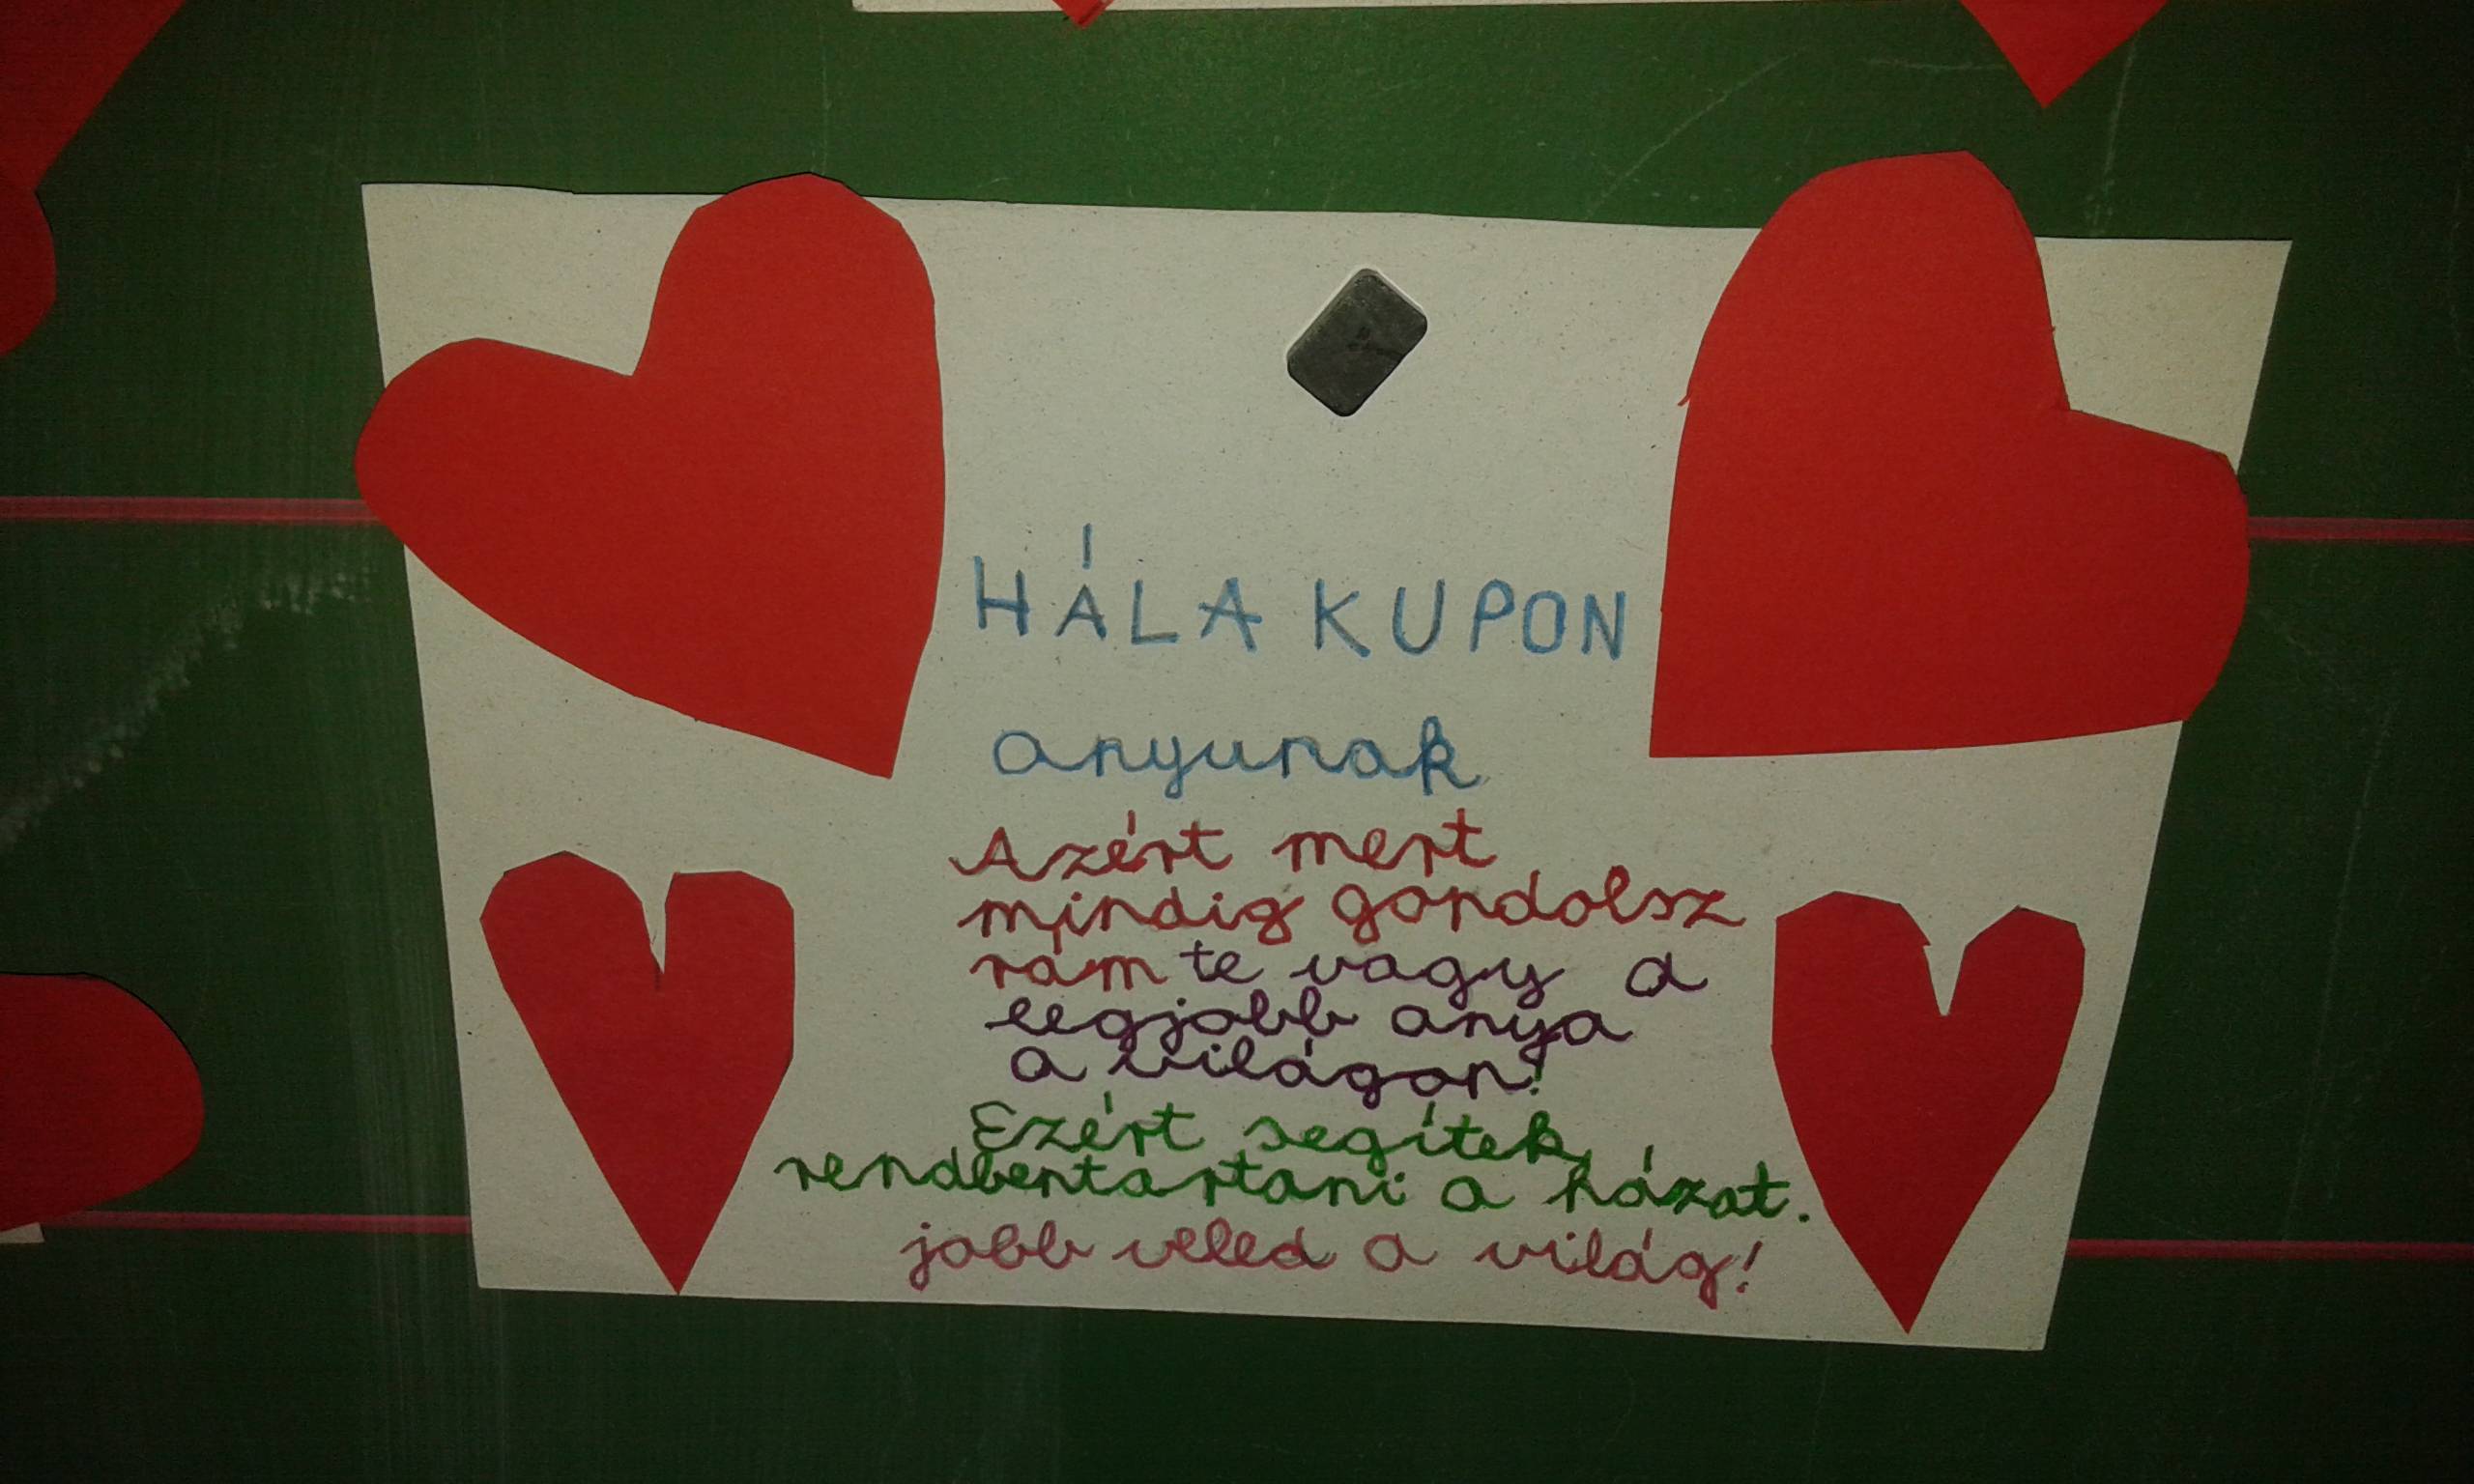 HÁLA KUPON
anyunak
Azért mert
mindig gondolsz
rám te vagy a
legjobb anya
a világon!
Ezért segítek
rendbentartani a házat.
jobb veled a világ!